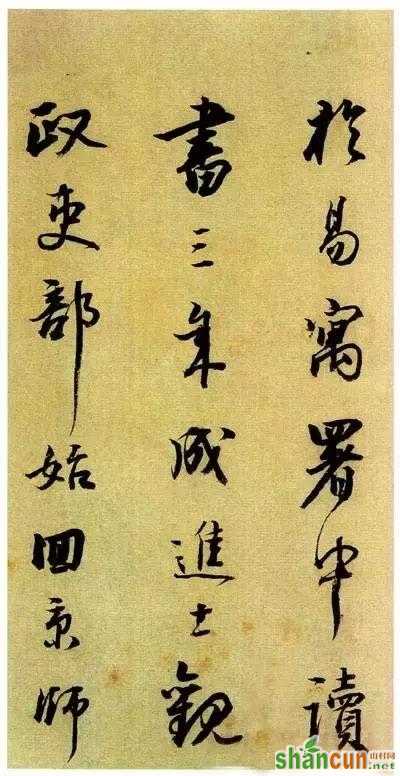 於易寓署中讀
書三年成進士觀
政吏部始回京師
shancun
山村网
.net